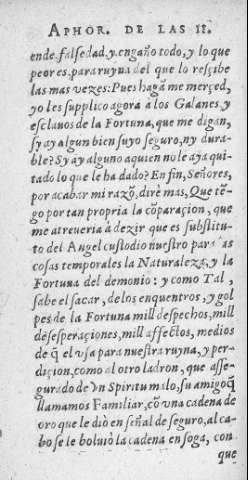 APHOR. DE LAS II.
ende falsedad, y engaño todo, y lo que
peor es, para ruyna del que lo rescibe
las mas vezes: Pues hagã me merçed,
yo les supplico agora à los Galanes, y
esclauos de la Fortuna, que me digan,
sy ay algun bien suyo seguro, ny dura-
ble? Sy ay alguno a quien no le aya qui-
tado lo que le ha dado? En fin, Señores,
por acabar mi razõ, dirè mas, Que tẽ-
go por tan propria la cõparaçion, que
me atreueria à dezir que es substitu-
to del Angel custodio nuestro para las
cosas temporales la Naturaleza, y la
Fortuna del demonio: y como Tal,
sabe el sacar, de los enquentros, y gol
pes de la Fortuna mill despechos, mill
desesperaçiones, mill affectos, medios
de q̃ el vsa para nuestra ruyna, y per-
diçion, como al otro ladron, que asse-
gurado de vn Spiritu malo, su amigo q̃
llamamos Familiar, cõ vna cadena de
oro que le diò en señal de seguro, al ca-
bo se le boluiò la cadena en soga, con
que